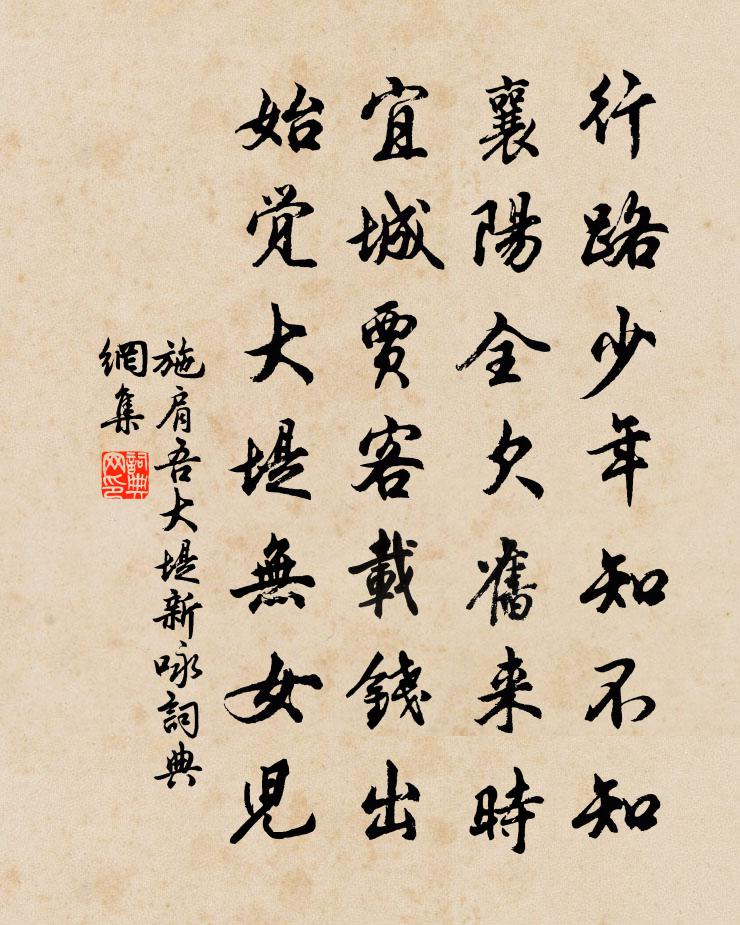 行路少年知不知
襄陽全欠舊来時
宜城賈客載錢出
始覚大堤無女児
施肩吾大堤新咏詞典
網集
詞典
网印